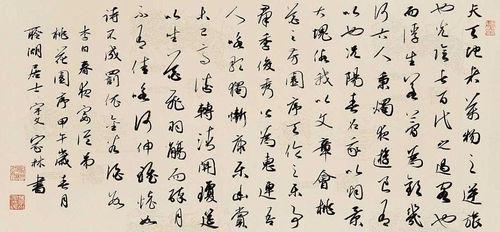 夫天地者萬物之逆旅
也光陰者百代之過客也
而浮生若夢為歡幾
何古人秉燭夜遊良有
以也況陽春召我以煙景
大塊假我以文章會桃
花之芳園序天倫之樂事
群季俊秀皆為惠連吾
人詠歌獨慚康樂幽賞
未已高談轉清開瓊筵
以坐花飛羽觴而醉月
不有佳詠何伸雅懷如
詩不成罰依金谷酒數
李白春夜宴從弟
桃花園序甲午歲春月
湖居士宇文家林書